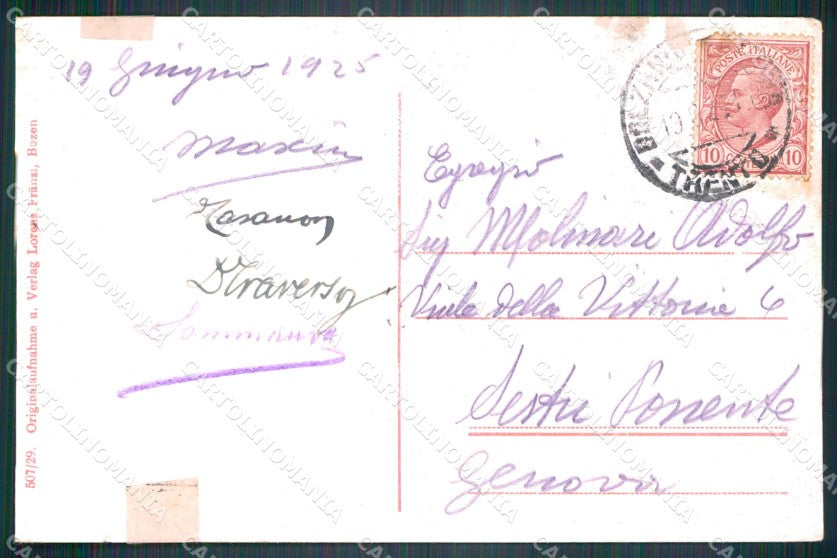 19 Giugno 1925
Masanon
Traverso
Egregio
Sig Molinari Adolfo
Viale della Vittoria 6
Sestri Ponente
Genova
POSTE ITALIANE
10 10
TRENTO
507/29. Originalaufnahme u. Verlag Lorenz Fränzl, Bozen
CARTOLINOMANIA